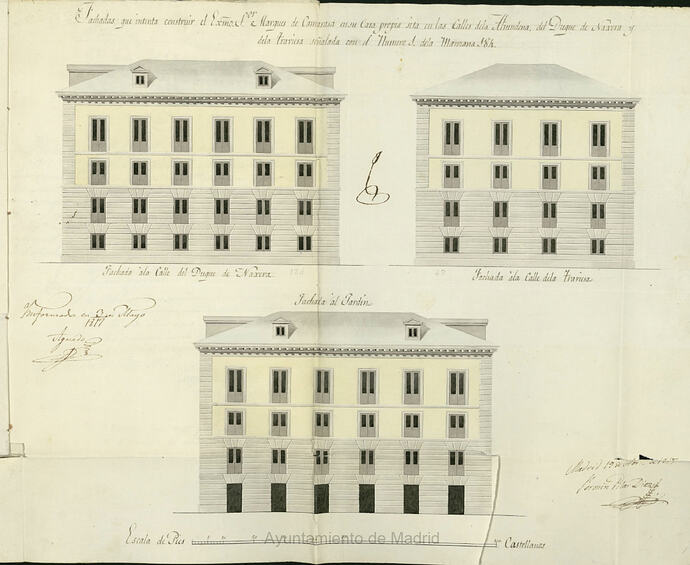 Fachadas, que intenta construir el Exmo. Sor. Marques de Camarasa en su Casa propia sita en las Calles dela Almudena, del Duque de Naxera y
dela Traviesa señalada con el Numero 1. dela Manzana 184.
Fachada ála Calle del Duque de Naxera
Fachada ála Calle dela Traviesa
Fachada al Jardin
Informado en Mayo
Aguado
Madrid
Fermin Pilar Diaz
Escala de Pies Castellanos
Ayuntamiento de Madrid